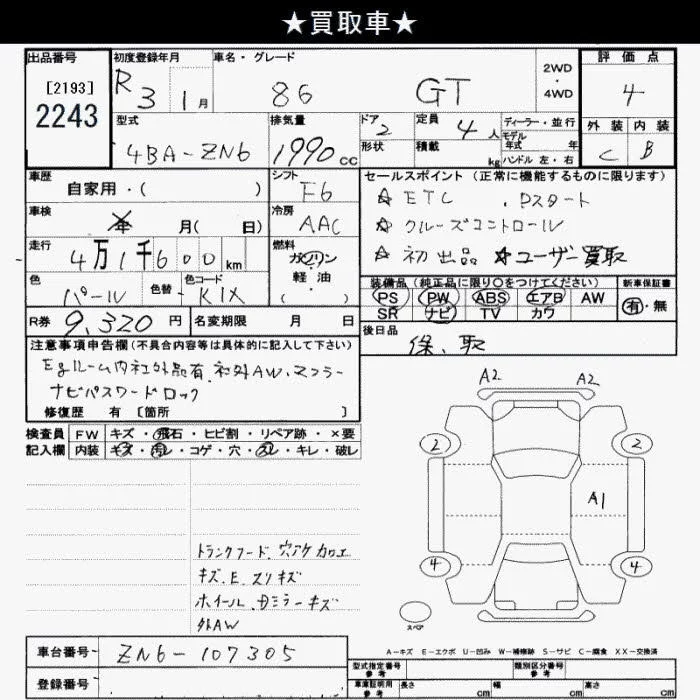 ★買取車★
出品番号
[2193]
2243
初度登録年月
R3 1月
車名・グレード
86 GT
2WD
・
4WD
評価点
4
型式
4BA-ZN6
排気量
1990cc
ドア
2
形状
定員
4人
積載
kg
ディーラー・並行
モデル
年式 年
ハンドル 左・右
外装 内装
C B
車歴
自家用・( )
シフト
F6
車検
年 月( 日)
冷房
AAC
走行
4万1千600km
燃料
ガソリン
・
軽油
・
( )
色
パール
色替
色コード
K1X
R券 9,320円
名変期限 月 日
セールスポイント (正常に機能するものに限ります)
☆ETC . Pスタート
☆クルーズコントロール
☆初出品 ☆ユーザー買取
装備品 (純正品に限り○をつけてください)
PS PW ABS エアB AW
SR ナビ TV カワ
新車保証書
有・無
後日品
保、取
注意事項申告欄(不具合内容等は具体的に記入して下さい)
Egルーム内社外品有. 社外AW.マフラー
ナビパスワードロック
修復歴 有 [箇所 ]
検査員
記入欄
FW キズ・飛石・ヒビ割・リペア跡・×要
内装 キズ・汚レ・コゲ・穴・スレ・キレ・破レ
トランクフード.穴アケカコエ
キズ.E.スリキズ
ホイール.Dミラーキズ
外AW
A2 A2
2 2
A1
4 4
スペア
A-キズ E-エクボ U-凹み W-補修跡 S-サビ C-腐食 XX-交換済
車台番号 ZN6-107305
登録番号
型式指定番号
参考
類別区分番号
参考
車庫証明用
参考
長さ cm 幅 cm 高さ cm